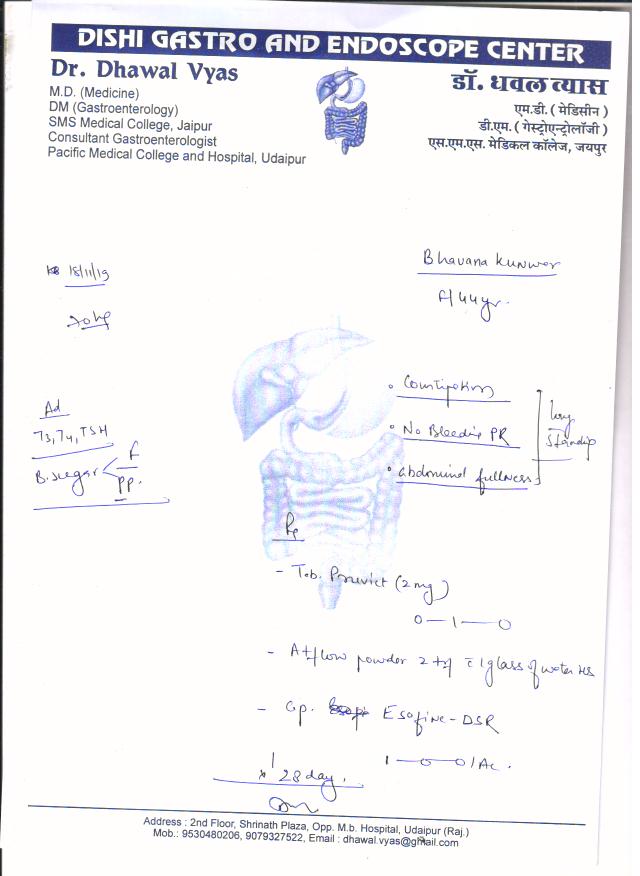 DISHI GASTRO AND ENDOSCOPE CENTER
Dr. Dhawal Vyas
M.D. (Medicine)
DM (Gastroenterology)
SMS Medical College, Jaipur
Consultant Gastroenterologist
Pacific Medical College and Hospital, Udaipur
डॉ. धवल व्यास
एम.डी. ( मेडिसीन )
डी.एम. ( गेस्ट्रोएन्ट्रोलॉजी )
एस.एम.एस. मेडिकल कॉलेज, जयपुर
18/11/19
Bhavana Kunwer
F/44yr.
Constipation
No Bleeding PR
abdominal fullness
long standing
Ad
T3, T4, TSH
B. sugar F
PP.
Rx
- Tab. Pruvict (2mg)
0—1—0
- powder 2 tsf c̄ 1 glass of water HS
- Cap. Esofine-DSR
1—0—0/Ac.
x 28 day.
Address : 2nd Floor, Shrinath Plaza, Opp. M.b. Hospital, Udaipur (Raj.)
Mob.: 9530480206, 9079327522, Email : dhawal.vyas@gmail.com